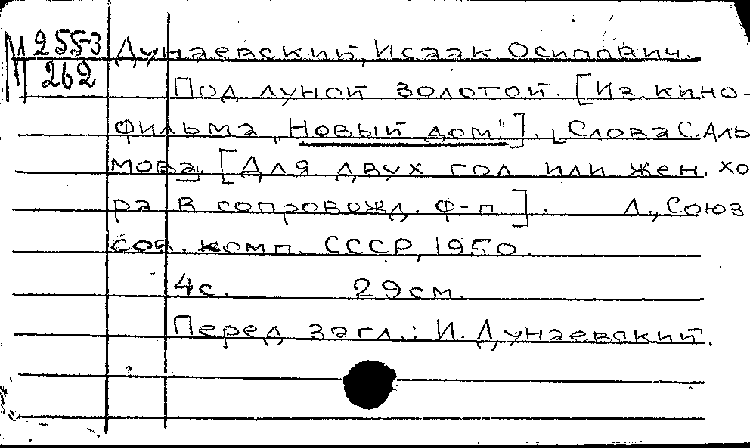 М 2553
262
Дунаевский, Исаак Осипович.
Под луной золотой. [Из кино-
фильма "Новый дом"]. [Слова С. Аль
мова]. [Для двух гол. или жен. хо
ра в сопровожд. ф-п]. Л., Союз
сов. комп. СССР, 1950.
4с. 29см.
Перед загл.: И. Дунаевский.